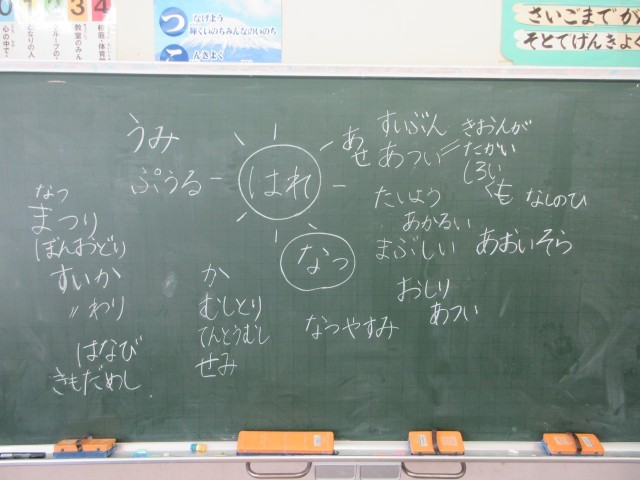 0 1 2 3 4
心の中で
となりの人
グループの
教室のみん
校庭・体育
つ なげよう
輝くいのちみんなのいのち
こ んきよく
さいごまでが
そとでげんきよく
うみ
ぷうる
はれ
なつ
あせ
すいぶん
あつい＝きおんが
たかい
しろい
くも
なしのひ
たいよう
あかるい
まぶしい
あおいそら
おしり
あつい
なつ
まつり
ぼんおどり
すいか
〃わり
はなび
きもだめし
か
むしとり
てんとうむし
せみ
なつやすみ